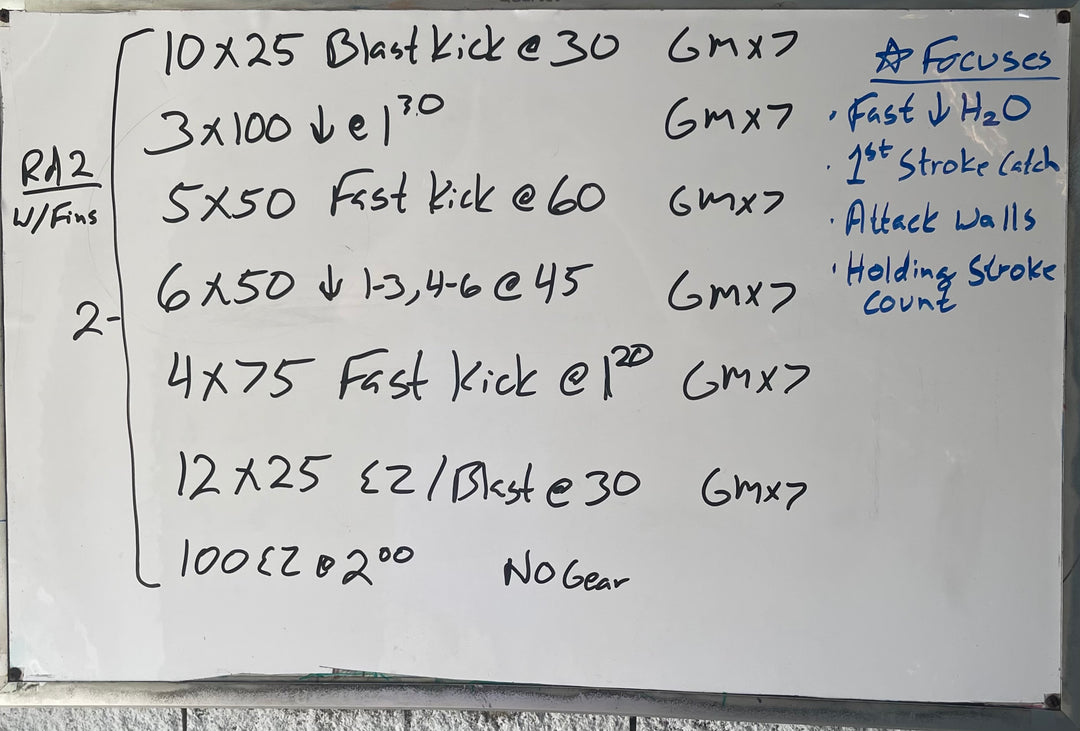 10x25 Blast Kick @ 30 Gmx7
3x100 ↓ @ 1³⁰ Gmx7
Rd 2
W/Fins
5x50 Fast Kick @ 60 Gmx7
6x50 ↓ 1-3, 4-6 @ 45 Gmx7
2-
4x75 Fast Kick @ 1²⁰ Gmx7
12x25 EZ/Blast @ 30 Gmx7
100 EZ @ 2⁰⁰ No Gear
☆ Focuses
· Fast ↓ H₂O
· 1st Stroke Catch
· Attack Walls
· Holding Stroke
Count